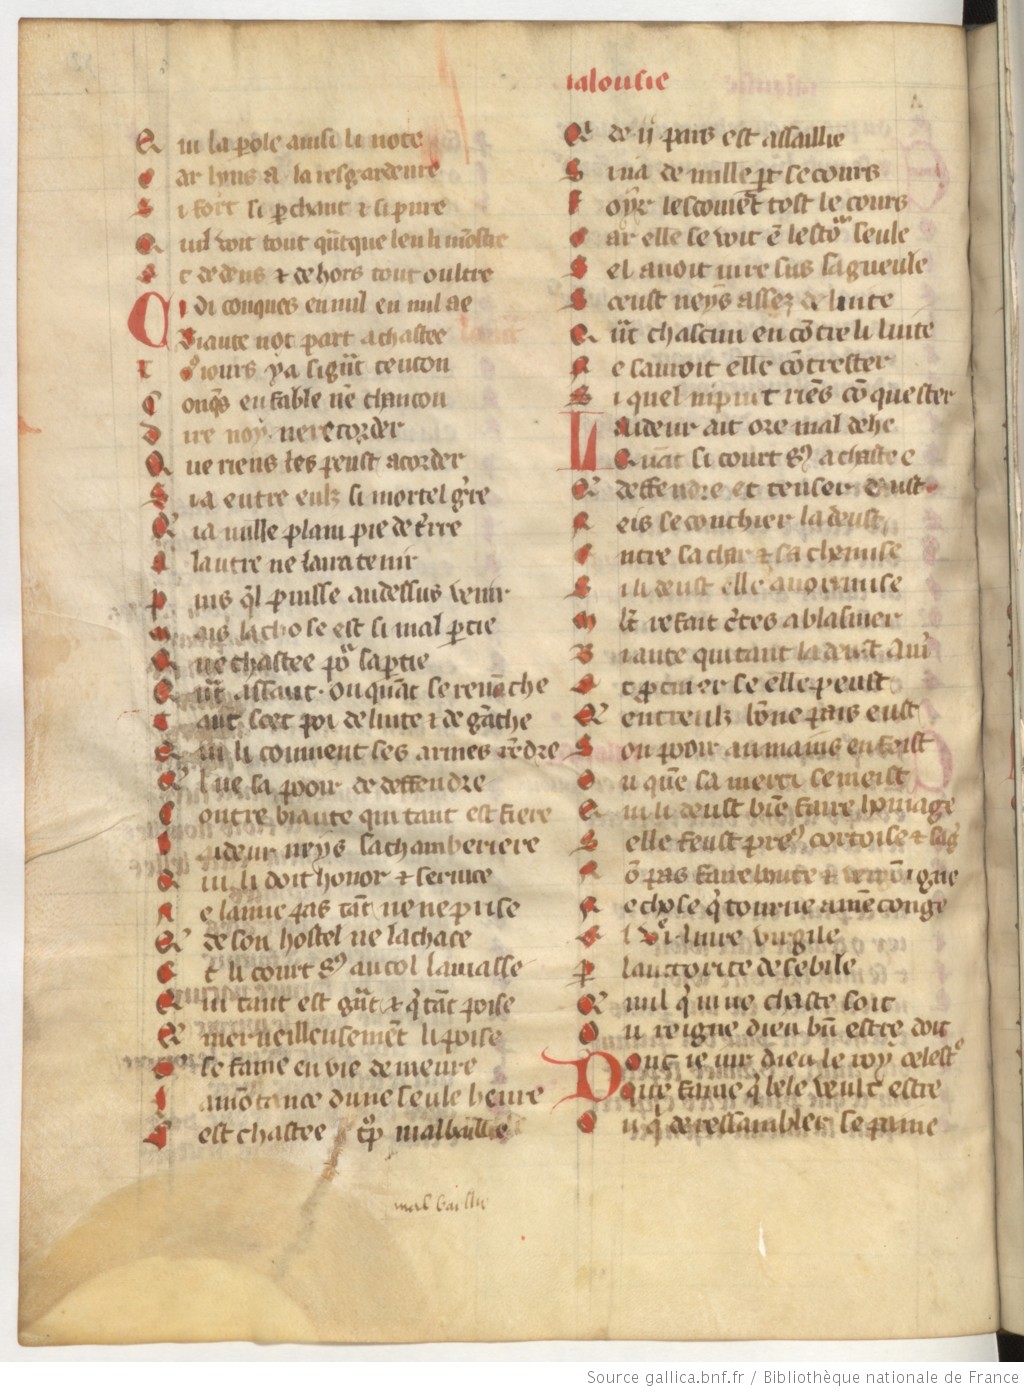 ialousie
Q ui la parole ainsi li note
C ar lyns a la resgardeure
S i fort si perchant & si pure
Q uil voit tout quanque len li monstre
E t dedens & dehors tout oultre
C i di conques en nul en nul ae
Biaute not part a chastee
T oziours ya si grant tencon
C onques en fable ne chancon
D ire noy ne recorder
Q ue riens les peust acorder
S ia entre eulz si mortel gerre
Q ia nulle plain pie de terre
A lautre ne laira tenir
P uis quil puisse au dessus venir
M ais la chose est si mal partie
Q ue chastee pour sa partie
Q uant assaut ou quant se reuanche
T ant scet poi de luite & de ganche
Q ui li conuient ses armes rendre
Q l ne la pooir de deffendre
C ontre biaute qui tant est fiere
L aideur neys sa chamberiere
Q ui li doit honor & seruice
N e laime pas tant ne ne prise
Q de son hostel ne lachace
E t li court sus au col la masse
Q ui tant est grant & qui tant poise
Q merueilleusement li poise
se fame en vie demeure
L amontance dune seule heure
S est chastee trop malbaillie
Q de ii pars est assaillie
S i na de nulle part secours
F oyr lesconuient tost le cours
C ar elle se voit en lestour seule
S el auoit iure sus sa gueule
S ceust neys assez de luite
Q uant chascun encontre li luite
N e sauroit elle contrester
S i quel ni puit riens conquester
L Aideur ait ore mal dehe
Quant si court sus a chastee
Q deffendre et tenser deust
N eis se couchier la deust
E ntre sa char & sa chemise
S i li deust elle auoir mise
M lt refait certes a blasmer
B iaute qui tant la deust amer
E t procurer se elle peust
Q entreulz bonne pais eust
S on pooir au mains en feist
O u quen sa merci se meist
Q ui li deust bien faire homage
S elle feust preus cortoise & sage
N on pas faire honte & vergoigne
N e chose qui tourne a mencongne
S l vi liure virgile
P lauctorite de sebile
Q nuil qui viue chaste soit
O u reigne dieu bien estre doit
D Ont ie iur dieu le roy celestre
Que fame qui bele veult estre
O u qui de ressambler se paine
mal baillie
Source gallica.bnf.fr / Bibliothèque nationale de France